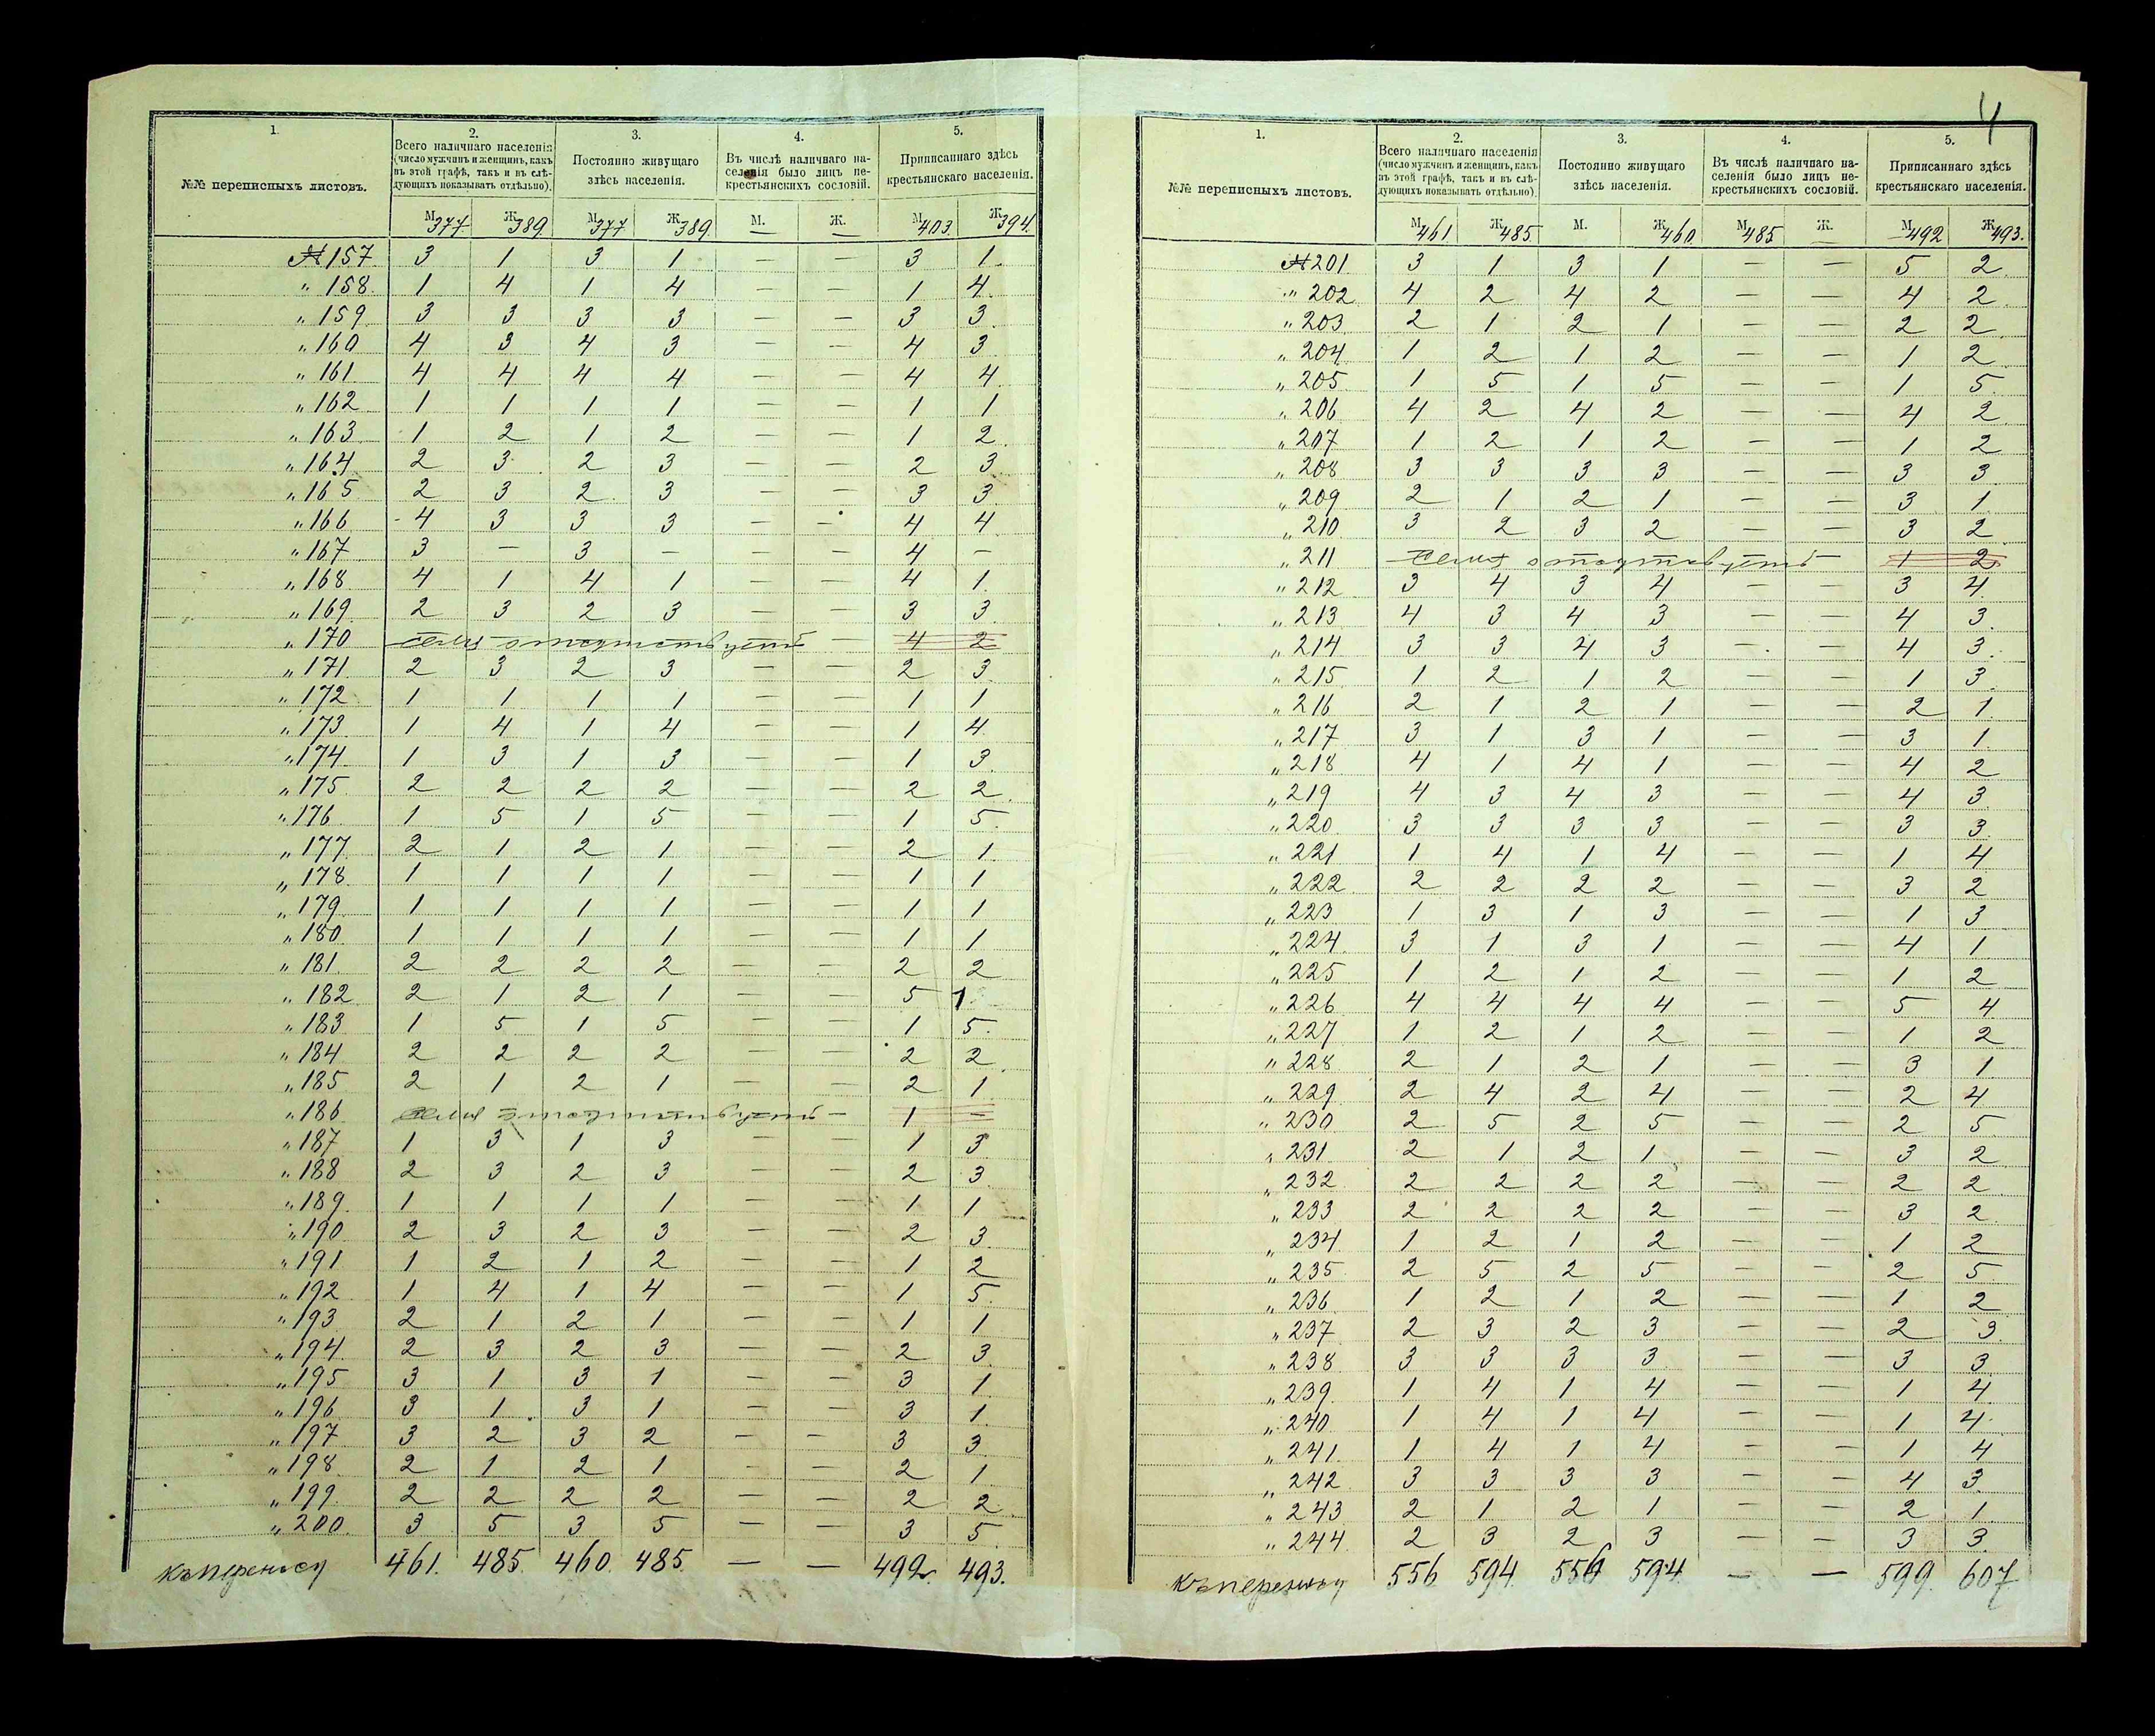 4
1. 2. 3. 4. 5.
№№ переписныхъ листовъ. Всего наличнаго населенія (число мужчинъ и женщинъ, какъ въ этой графѣ, такъ и въ слѣдующихъ показывать отдѣльно). Постоянно живущаго здѣсь населенія. Въ числѣ наличнаго населенія было лицъ некрестьянскихъ сословій. Приписаннаго здѣсь крестьянскаго населенія.
М 377 Ж 389 М 377 Ж 389 М. — Ж. — М 403 Ж 394
№ 157 3 1 3 1 — — 3 1
" 158 1 4 1 4 — — 1 4
" 159 3 3 3 3 — — 3 3
" 160 4 3 4 3 — — 4 3
" 161 4 4 4 4 — — 4 4
" 162 1 1 1 1 — — 1 1
" 163 1 2 1 2 — — 1 2
" 164 2 3 2 3 — — 2 3
" 165 2 3 2 3 — — 3 3
" 166 4 3 3 3 — — 4 4
" 167 3 — 3 — — — 4 —
" 168 4 1 4 1 — — 4 1
" 169 2 3 2 3 — — 3 3
" 170 семья отсутствуетъ — 4 2
" 171 2 3 2 3 — — 2 3
" 172 1 1 1 1 — — 1 1
" 173 1 4 1 4 — — 1 4
" 174 1 3 1 3 — — 1 3
" 175 2 2 2 2 — — 2 2
" 176 1 5 1 5 — — 1 5
" 177 2 1 2 1 — — 2 1
" 178 1 1 1 1 — — 1 1
" 179 1 1 1 1 — — 1 1
" 180 1 1 1 1 — — 1 1
" 181 2 2 2 2 — — 2 2
" 182 2 1 2 1 — — 5 1
" 183 1 5 1 5 — — 1 5
" 184 2 2 2 2 — — 2 2
" 185 2 1 2 1 — — 2 1
" 186 семья отсутствуетъ — 1 —
" 187 1 3 1 3 — — 1 3
" 188 2 3 2 3 — — 2 3
" 189 1 1 1 1 — — 1 1
" 190 2 3 2 3 — — 2 3
" 191 1 2 1 2 — — 1 2
" 192 1 4 1 4 — — 1 5
" 193 2 1 2 1 — — 1 1
" 194 2 3 2 3 — — 2 3
" 195 3 1 3 1 — — 3 1
" 196 3 1 3 1 — — 3 1
" 197 3 2 3 2 — — 3 3
" 198 2 1 2 1 — — 2 1
" 199 2 2 2 2 — — 2 2
" 200 3 5 3 5 — — 3 5
Къ переносу 461. 485. 460. 485. — — 492. 493.
1. 2. 3. 4. 5.
№№ переписныхъ листовъ. Всего наличнаго населенія (число мужчинъ и женщинъ, какъ въ этой графѣ, такъ и въ слѣдующихъ показывать отдѣльно). Постоянно живущаго здѣсь населенія. Въ числѣ наличнаго населенія было лицъ некрестьянскихъ сословій. Приписаннаго здѣсь крестьянскаго населенія.
М 461 Ж 485 М. Ж 460 М 485 Ж. — М 492 Ж 493.
№ 201 3 1 3 1 — — 5 2
" 202 4 2 4 2 — — 4 2
" 203 2 1 2 1 — — 2 2
" 204 1 2 1 2 — — 1 2
" 205 1 5 1 5 — — 1 5
" 206 4 2 4 2 — — 4 2
" 207 1 2 1 2 — — 1 2
" 208 3 3 3 3 — — 3 3
" 209 2 1 2 1 — — 3 1
" 210 3 2 3 2 — — 3 2
" 211 семья отсутствуетъ — 1 2
" 212 3 4 3 4 — — 3 4
" 213 4 3 4 3 — — 4 3
" 214 3 3 4 3 — — 4 3
" 215 1 2 1 2 — — 1 3
" 216 2 1 2 1 — — 2 1
" 217 3 1 3 1 — — 3 1
" 218 4 1 4 1 — — 4 2
" 219 4 3 4 3 — — 4 3
" 220 3 3 3 3 — — 3 3
" 221 1 4 1 4 — — 1 4
" 222 2 2 2 2 — — 3 2
" 223 1 3 1 3 — — 1 3
" 224 3 1 3 1 — — 4 1
" 225 1 2 1 2 — — 1 2
" 226 4 4 4 4 — — 5 4
" 227 1 2 1 2 — — 1 2
" 228 2 1 2 1 — — 3 1
" 229 2 4 2 4 — — 2 4
" 230 2 5 2 5 — — 2 5
" 231 2 1 2 1 — — 3 2
" 232 2 2 2 2 — — 2 2
" 233 2 2 2 2 — — 3 2
" 234 1 2 1 2 — — 1 2
" 235 2 5 2 5 — — 2 5
" 236 1 2 1 2 — — 1 2
" 237 2 3 2 3 — — 2 3
" 238 3 3 3 3 — — 3 3
" 239 1 4 1 4 — — 1 4
" 240 1 4 1 4 — — 1 4
" 241 1 4 1 4 — — 1 4
" 242 3 3 3 3 — — 4 3
" 243 2 1 2 1 — — 2 1
" 244 2 3 2 3 — — 3 3
Къ переносу 556 594 556 594 — — 599 607